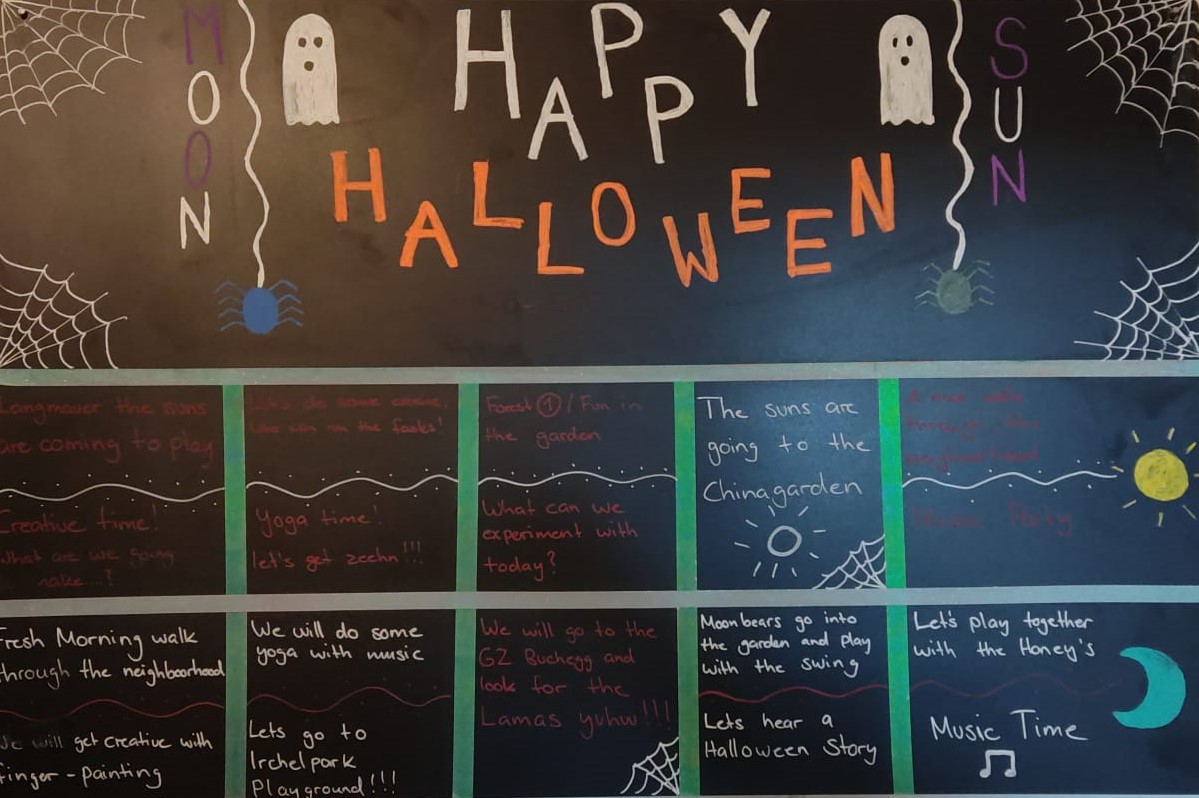 MOON
HAPPY
SUN
HALLOWEEN
Langmauer the suns
are coming to play
Let's do some
Forest ① / Fun in
the garden
The suns are
going to the
Chinagarden
A nice walk
through the
neighbourhood
Creative time!
What are we going
make...?
Yoga time!
let's get zechn!!!
What can we
experiment with
today?
Party
Fresh Morning walk
through the neighboorhood
We will do some
yoga with music
We will go to the
GZ Buchegg and
look for the
Lamas yuhuu!!!
Moonbears go into
the garden and play
with the swing
Let's play together
with the Honey's
We will get creative with
finger-painting
Lets go to
Irchelpark
Playground!!!
Lets hear a
Halloween Story
Music Time